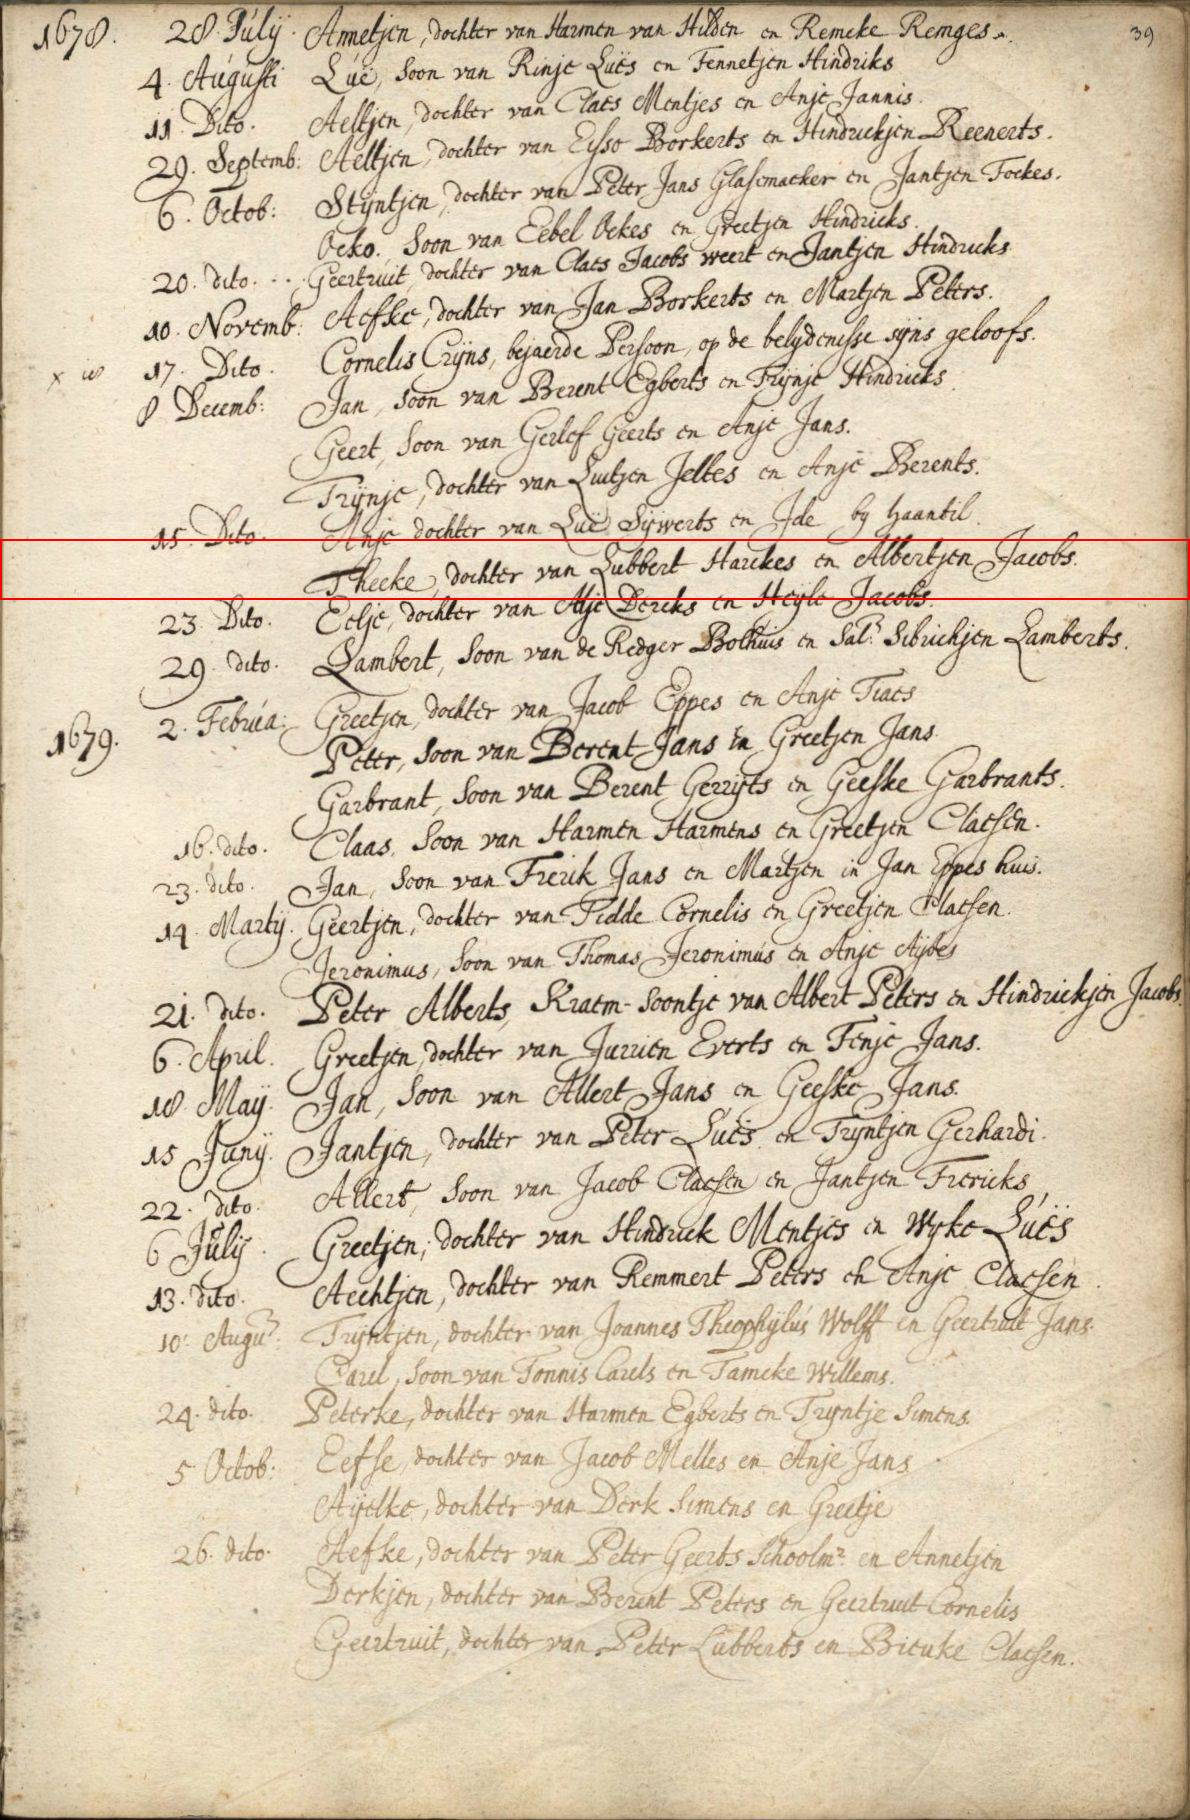 39
1678. 28. Julij. Annetjen, dochter van Harmen van Hilden en Remcke Remges.
4. Augusti Luë, soon van Rinje Luës en Fennetjen Hindriks
11. Dito. Aeltjen, dochter van Claes Mentjes en Anje Jannis.
29. Septemb: Aeltjen, dochter van Eysso Borkerts en Hindrickjen Reenerts.
6. Octob: Stijntjen, dochter van Peter Jans Glasemaeker en Jantjen Fockes.
Ocko, soon van Eebel Ockes en Greetjen Hindricks.
20. dito. Geertruit, dochter van Claes Jacobs weert en Jantjen Hindricks
10. Novemb: Aefke, dochter van Jan Borkerts en Martjen Peters.
17. Dito. Cornelis Crijns, bejaerde Persoon, op de belydenisse sijns geloofs.
8 Decemb: Jan, soon van Berent Egberts en Trijnje Hindricks.
Geert, soon van Gerlef Geerts en Anje Jans.
Trijnje, dochter van Luitjen Jeltes en Anje Berents.
15. Dito. Anje dochter van Luë Sijwerts en Ide by Haantil.
Thecke, dochter van Lubbert Harckes en Albertjen Jacobs.
23. Dito. Eelje, dochter van Atje Dercks en Heyle Jacobs.
29. dito. Lambert, soon van de Redger Bolhuis en Sal.r Sibrichjen Lamberts.
1679. 2. Februa: Greetjen, dochter van Jacob Eppes en Anje Tiaes
Peter, soon van Berent Jans en Greetjen Jans.
Garbrant, soon van Berent Gerrijts en Geeske Garbrants.
16. dito. Claas, soon van Harmen Harmens en Greetjen Claesen.
23. dito. Jan, soon van Frerik Jans en Martjen in Jan Eppes huis.
14. Martij. Geertjen, dochter van Fedde Cornelis en Greetjen Claesen.
Jeronimus, soon van Thomas Jeronimus en Anje Aijbes
21. dito. Peter Alberts, Kraem-soontje van Albert Peters en Hindrickjen Jacobs.
6. April. Greetjen, dochter van Jurrien Everts en Fenje Jans.
18. Maij. Jan, soon van Allert Jans en Geeske Jans.
15 Junij. Jantjen, dochter van Peter Luës en Trijntjen Gerhardi.
22. dito. Allert, soon van Jacob Claesen en Jantjen Frericks
6 Julij. Greetjen, dochter van Hindrick Mentjes en Wyke Luës
13. dito. Aechtjen, dochter van Remmert Peters en Anje Claesen.
10. Augus: Trijntjen, dochter van Joannes Theophijlus Wolff en Geertruit Jans.
Carel, soon van Tonnis Carels en Tameke Willems.
24. dito. Peterke, dochter van Harmen Egberts en Trijntje Simens.
5 Octob: Eefse, dochter van Jacob Melles en Anje Jans
Aijelke, dochter van Derk Simens en Greetje
26. dito. Aefke, dochter van Peter Geerts Schoolmr. en Annetjen
Derkjen, dochter van Berent Peters en Geertruit Cornelis
Geertruit, dochter van Peter Lubberts en Brieuke Claesen.